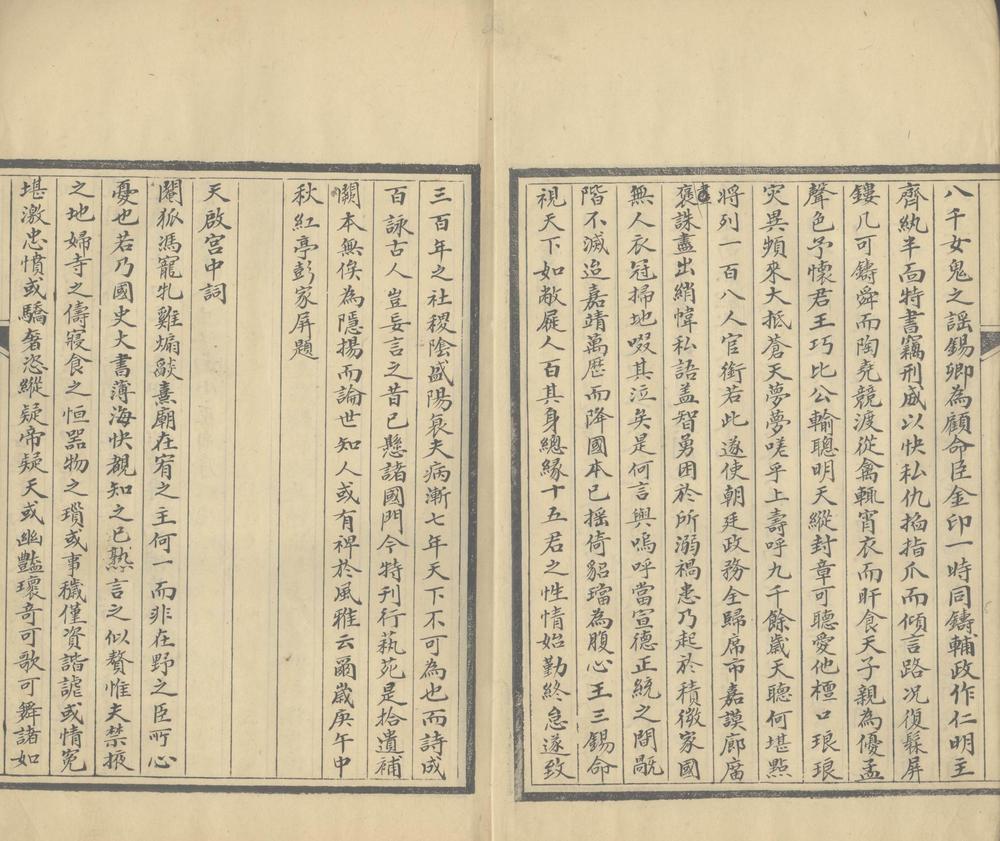 八千女鬼之謡錫卿為顧命臣金印一時同鑄輔政作仁明主
齊紈半面特書竊刑威以快私仇掐指爪而傾言路况復髹屏
鏤几可鑄舜而陶堯競渡從禽輒宵衣而旰食天子親為優孟
聲色予懷君王巧比公輸聰明天縱封章可聽愛他檀口琅琅
灾異頻來大抵蒼天夢夢嗟乎上壽呼九千餘歲天聰何堪點
將列一百八人官銜若此遂使朝廷政務全歸席市嘉謨廊廟
褒誅盡出綃幃私語盖智勇困於所溺禍患乃起於積微家國
無人衣冠掃地啜其泣矣是何言與嗚呼當宣德正統之間厩
階不滅迨嘉靖萬歷而降國本已摇倚貂璫為腹心王三錫命
視天下如敝屣人百其身總緣十五君之性情始勤終怠遂致
三百年之社稷陰盛陽衰夫病漸七年天下不可為也而詩成
百詠古人豈妄言之昔已懸諸國門今特刊行蓺苑是拾遺補
闕本無俟為隱揚而論世知人或有裨於風雅云爾歲庚午中
秋紅亭彭家屏題
天啟宫中詞
閹狐馮寵牝雞煽燄熹廟在宥之主何一而非在野之臣所心
憂也若乃國史大書薄海快覩知之已熟言之似贅惟夫禁掖
之地婦寺之儔寢食之恒器物之瑣或事穢僅資諧謔或情寃
堪激忠憤或驕奢恣縱疑帝疑天或幽豔瓌奇可歌可舞諸如